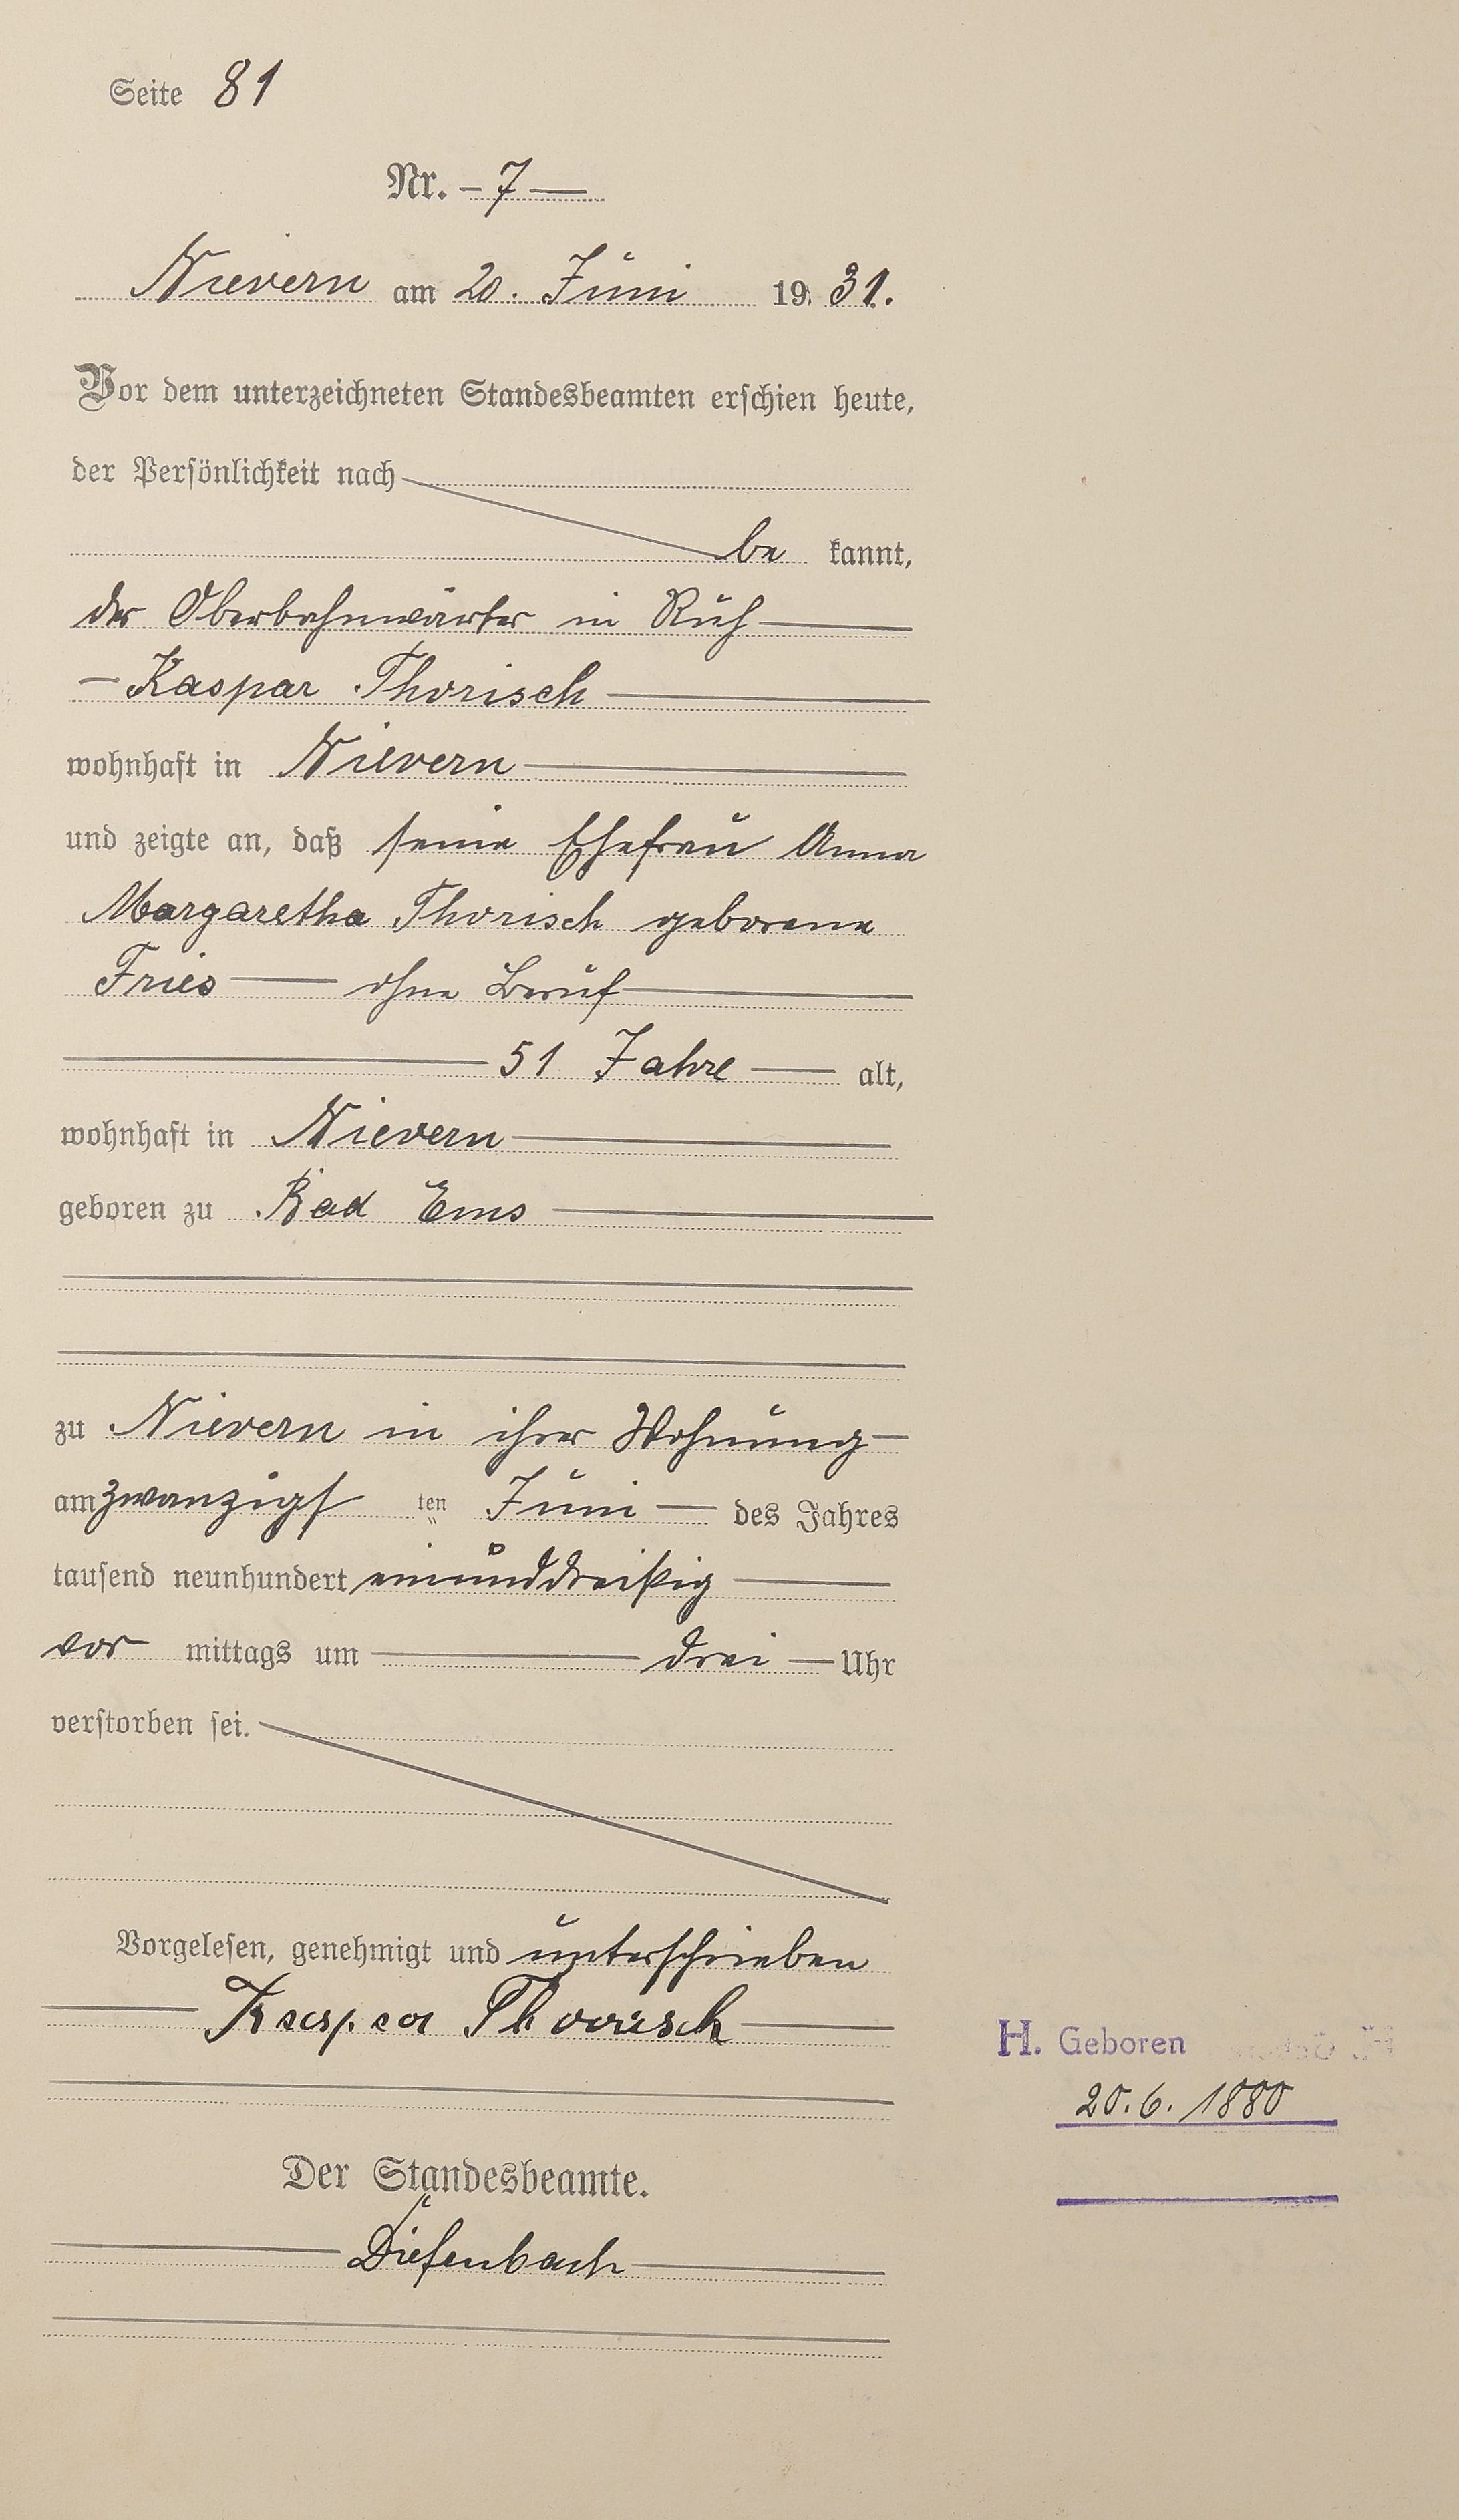 Seite 81
Nr. - 7 -
Nievern am 20. Juni 1931.
Vor dem unterzeichneten Standesbeamten erschien heute,
der Persönlichkeit nach
be kannt,
der Oberbahnwärter in Ruh
- Kaspar Thorisch
wohnhaft in Nievern
und zeigte an, daß seine Ehefrau Anna
Margaretha Thorisch geborene
Fries - ohne Beruf
51 Jahre - alt,
wohnhaft in Nievern
geboren zu Bad Ems
zu Nievern in ihrer Wohnung
am zwanzigs ten Juni des Jahres
tausend neunhundert einunddreißig
vor mittags um drei Uhr
verstorben sei.
Vorgelesen, genehmigt und unterschrieben
Kaspar Thorisch
H. Geboren
20.6.1880
Der Standesbeamte.
Diefenbach